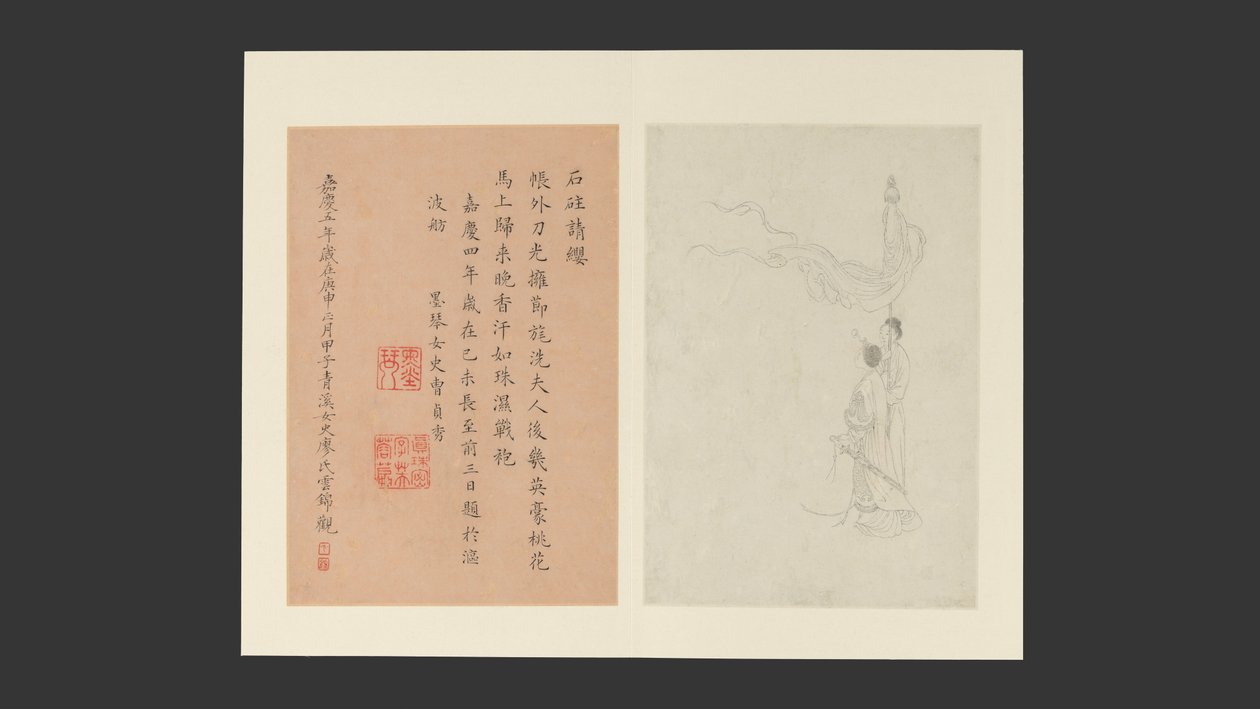 石砫請纓
帳外刀光擁節旄洗夫人後幾英豪桃花
馬上歸来晚香汗如珠濕戰袍
嘉慶四年歲在己未長至前三日題於漚
波舫
墨琴女史曹貞秀
嘉慶五年歲在庚申正月甲子青溪女史廖氏雲錦觀